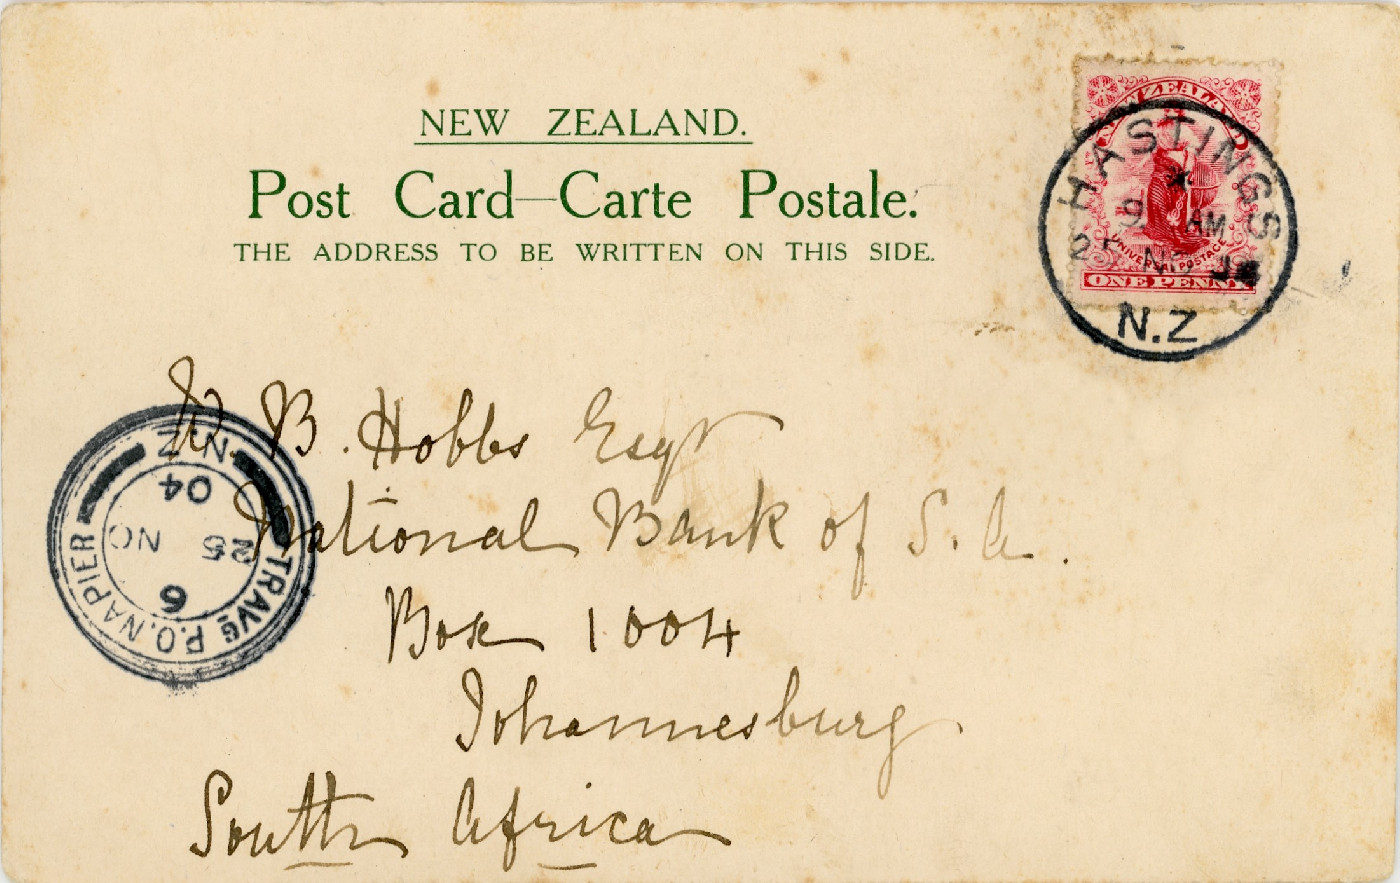 NEW ZEALAND.
Post Card—Carte Postale.
THE ADDRESS TO BE WRITTEN ON THIS SIDE.
ZEALAND
UNIVERSAL POSTAGE
ONE PENNY
HASTINGS
9 AM
25 NO
N.Z
W. B. Hobbs Esqr
National Bank of S. A.
Box 1004
Johannesburg
South Africa
TRAVG P.O. NAPIER
6
25 NO
04
N.Z